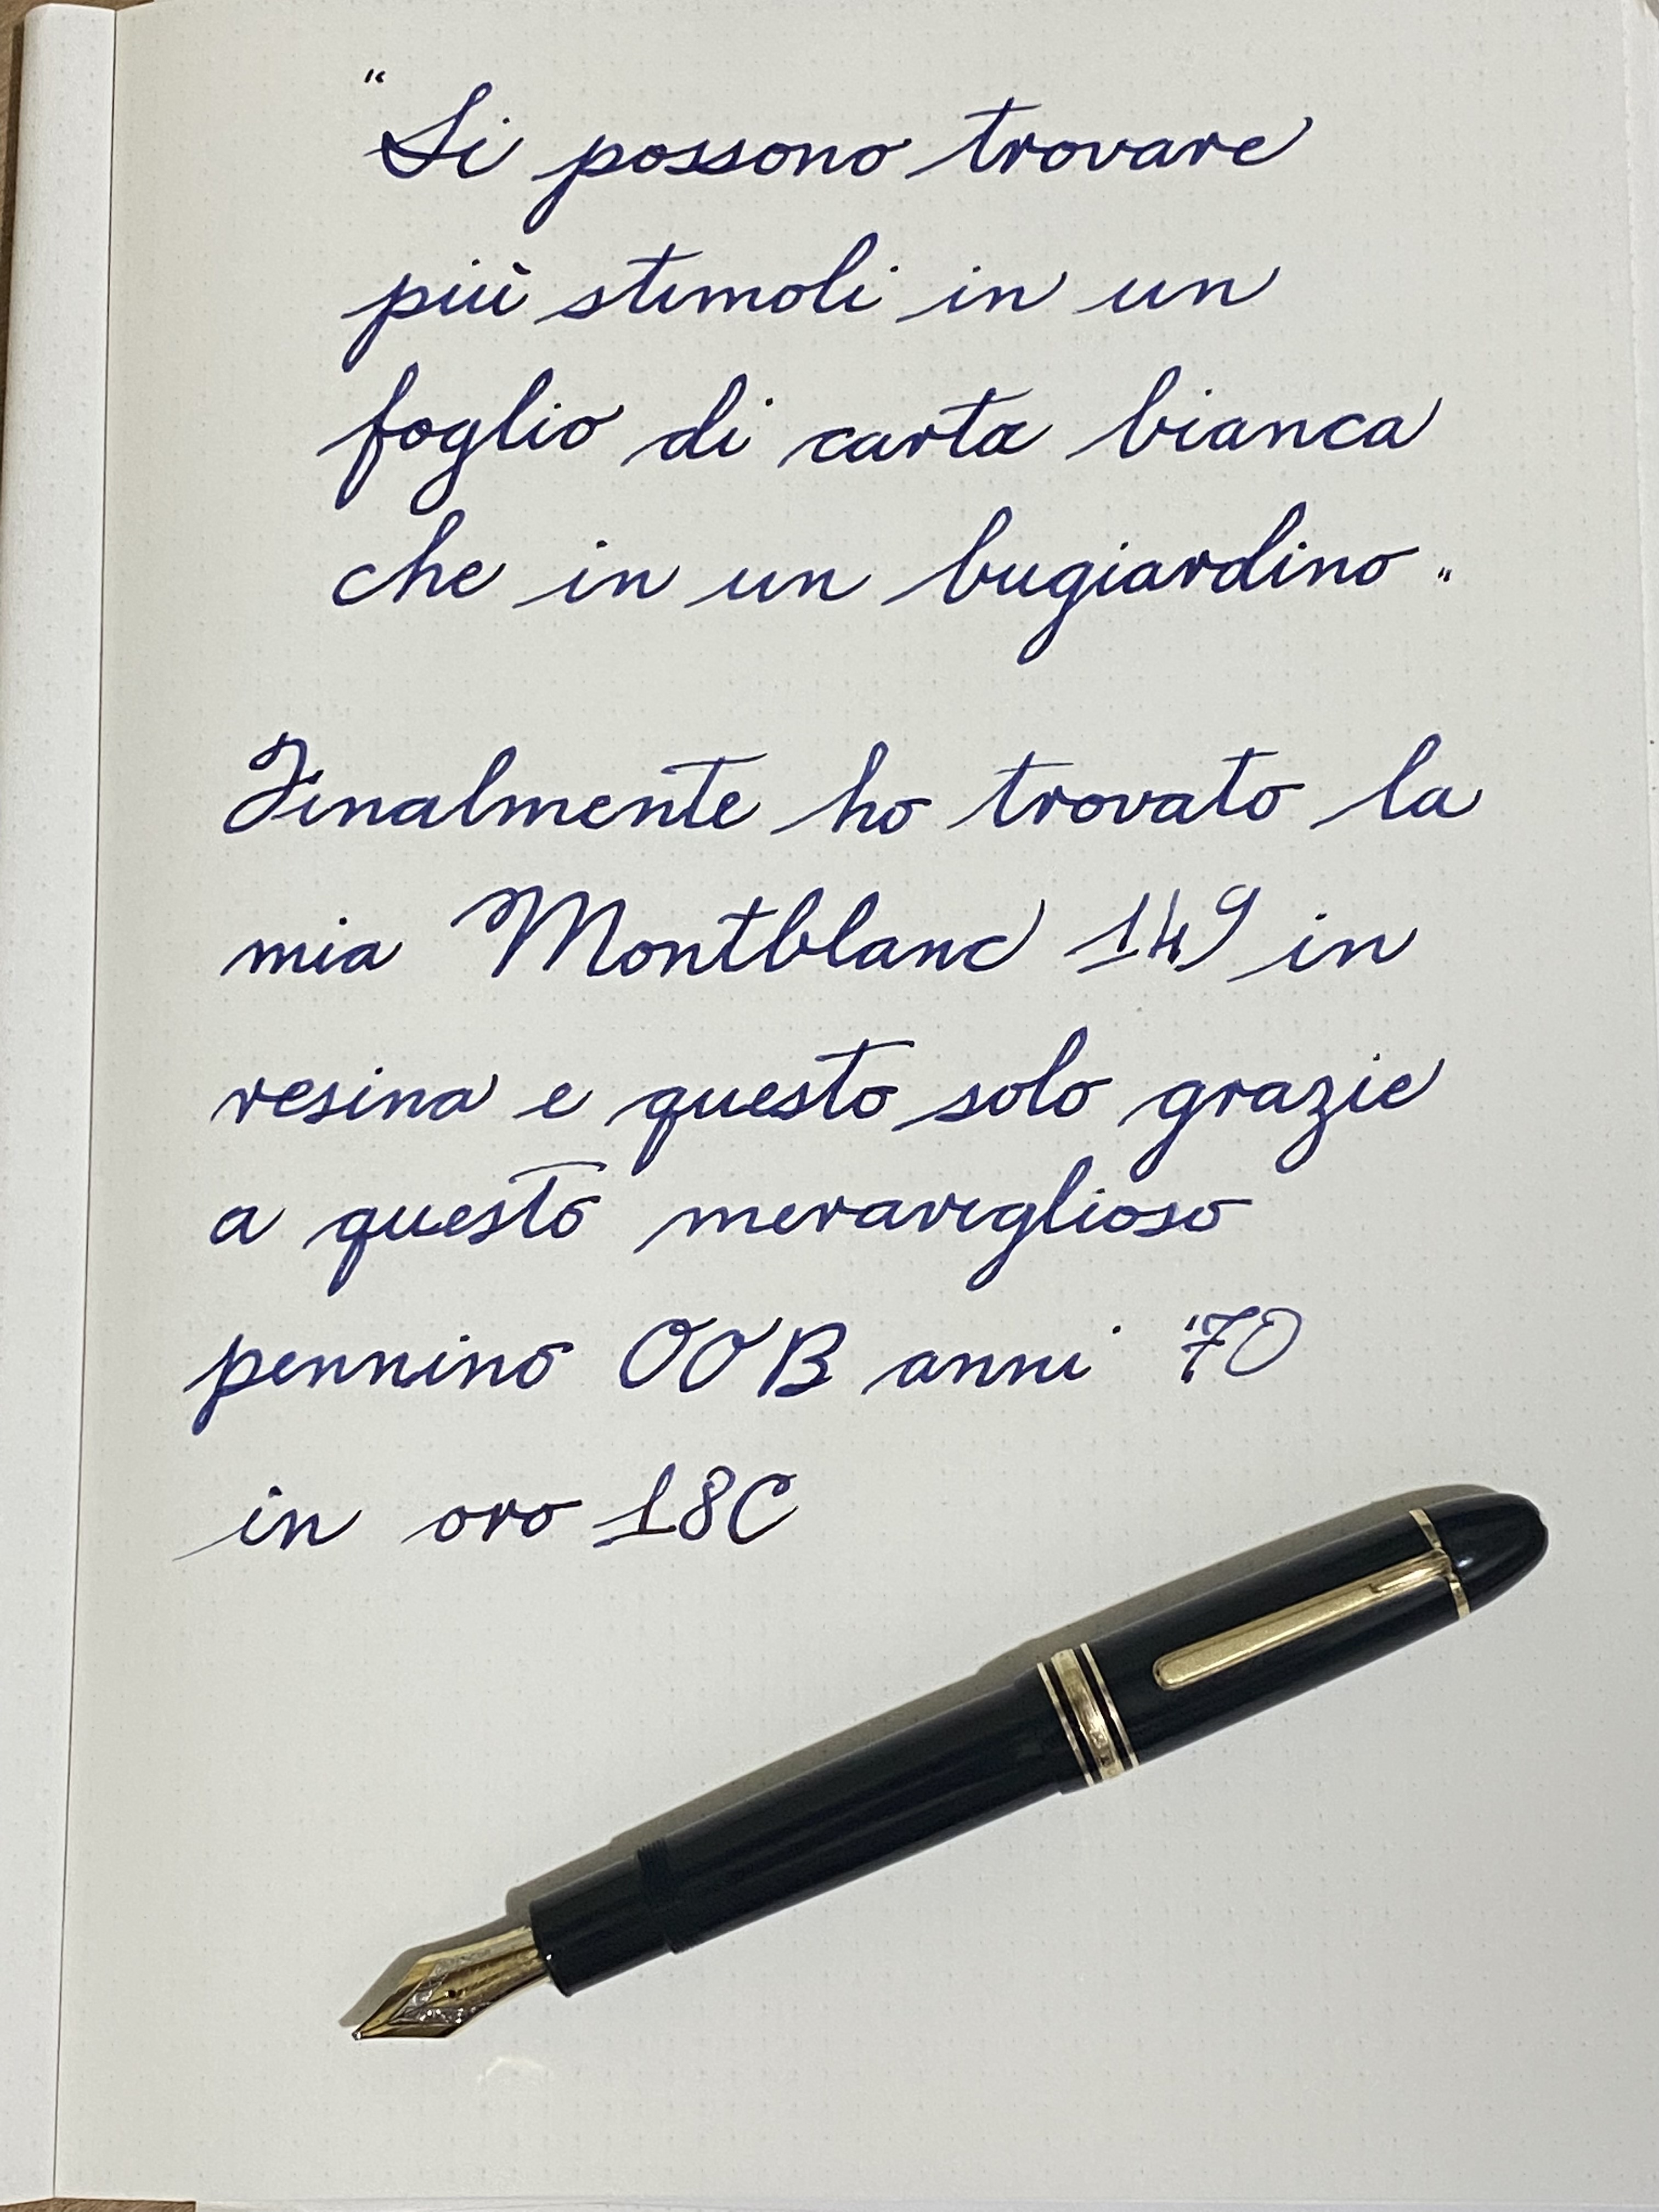 "Si possono trovare
più stimoli in un
foglio di carta bianca
che in un bugiardino"
Finalmente ho trovato la
mia Montblanc 149 in
resina e questo solo grazie
a questo meraviglioso
pennino OOB anni '70
in oro 18C